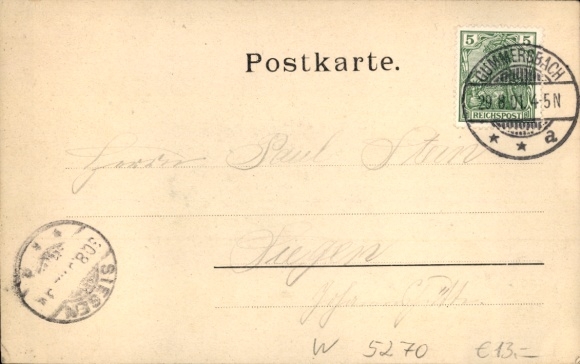 Postkarte.
5 5
REICHSPOST
GUMMERSBACH
29.8.01. 4-5N
* * a
Herrn Paul Stein
Siegen
SIEGEN
W 5270 €13.-